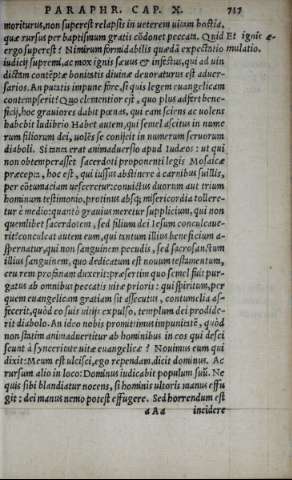 PARAPHR. CAP. X. 737
moriturus, non superest relapsis in ueterem uitam hostia,
quæ rursus per baptismum gratis cōdonet peccata. Quid
ergo superest? Nimirum formidabilis quædā expectatio
iudicij supremi, ac mox ignis sæuus & infectus, qui ad uin
dictam cōtemptæ bonitatis diuinæ deuoraturus est aduer-
sarios. An putatis impune fore, si quis legem euangelicam
contempserit? Quo clementior est, quo plus adfert bene-
ficij, hoc grauiores dabit pœnas, qui eam sciens ac uolens
habebit ludibrio. Habet autem, qui semel ascitus in nume
rum filiorum dei, uolēs se conijcit in numerum seruorum
diaboli. Si tanta erat animaduersio apud Iudæos: ut qui
non obtemperasset sacerdoti proponenti legis Mosaicæ
præcepta, hoc est, qui iussus abstinere à carnibus suillis,
per cōtumaciam uesceretur: conuictus duorum aut trium
hominum testimonio, protinus absq; misericordia tollere-
tur è medio: quantò grauius meretur supplicium, qui non
quemlibet sacerdotem, sed filium dei Iesum conculcaue-
rit: conculcat autem eum, qui tantum illius beneficium a-
spernatur, qui non sanguinem pecudis, sed sacrosanctum
illius sanguinem, quo dedicatum est nouum testamentum,
ceu rem profanam duxerit: præsertim quo semel fuit pur-
gatus ab omnibus peccatis uitæ prioris: qui spiritum, per
quem euangelicam gratiam sit assecutus, contumelia af-
fecerit, quòd eo suis uitijs expulso, templum dei prodide-
rit diabolo. An ideo nobis promittimus impunitatē, quòd
non statim animaduertitur ab hominibus in eos qui desci
scunt à synceritate uitæ euangelicæ? Nouimus eum qui
dixit: Meum est ulcisci, ego rependam, dicit dominus. Ac
rursum alio in loco: Dominus iudicabit populum suū. Ne
quis sibi blandiatur nocens, si hominis ultoris manus effu
git: dei manus nemo potest effugere. Sed horrendum est
aAa incidere
Et ignis æ-
mulatio.